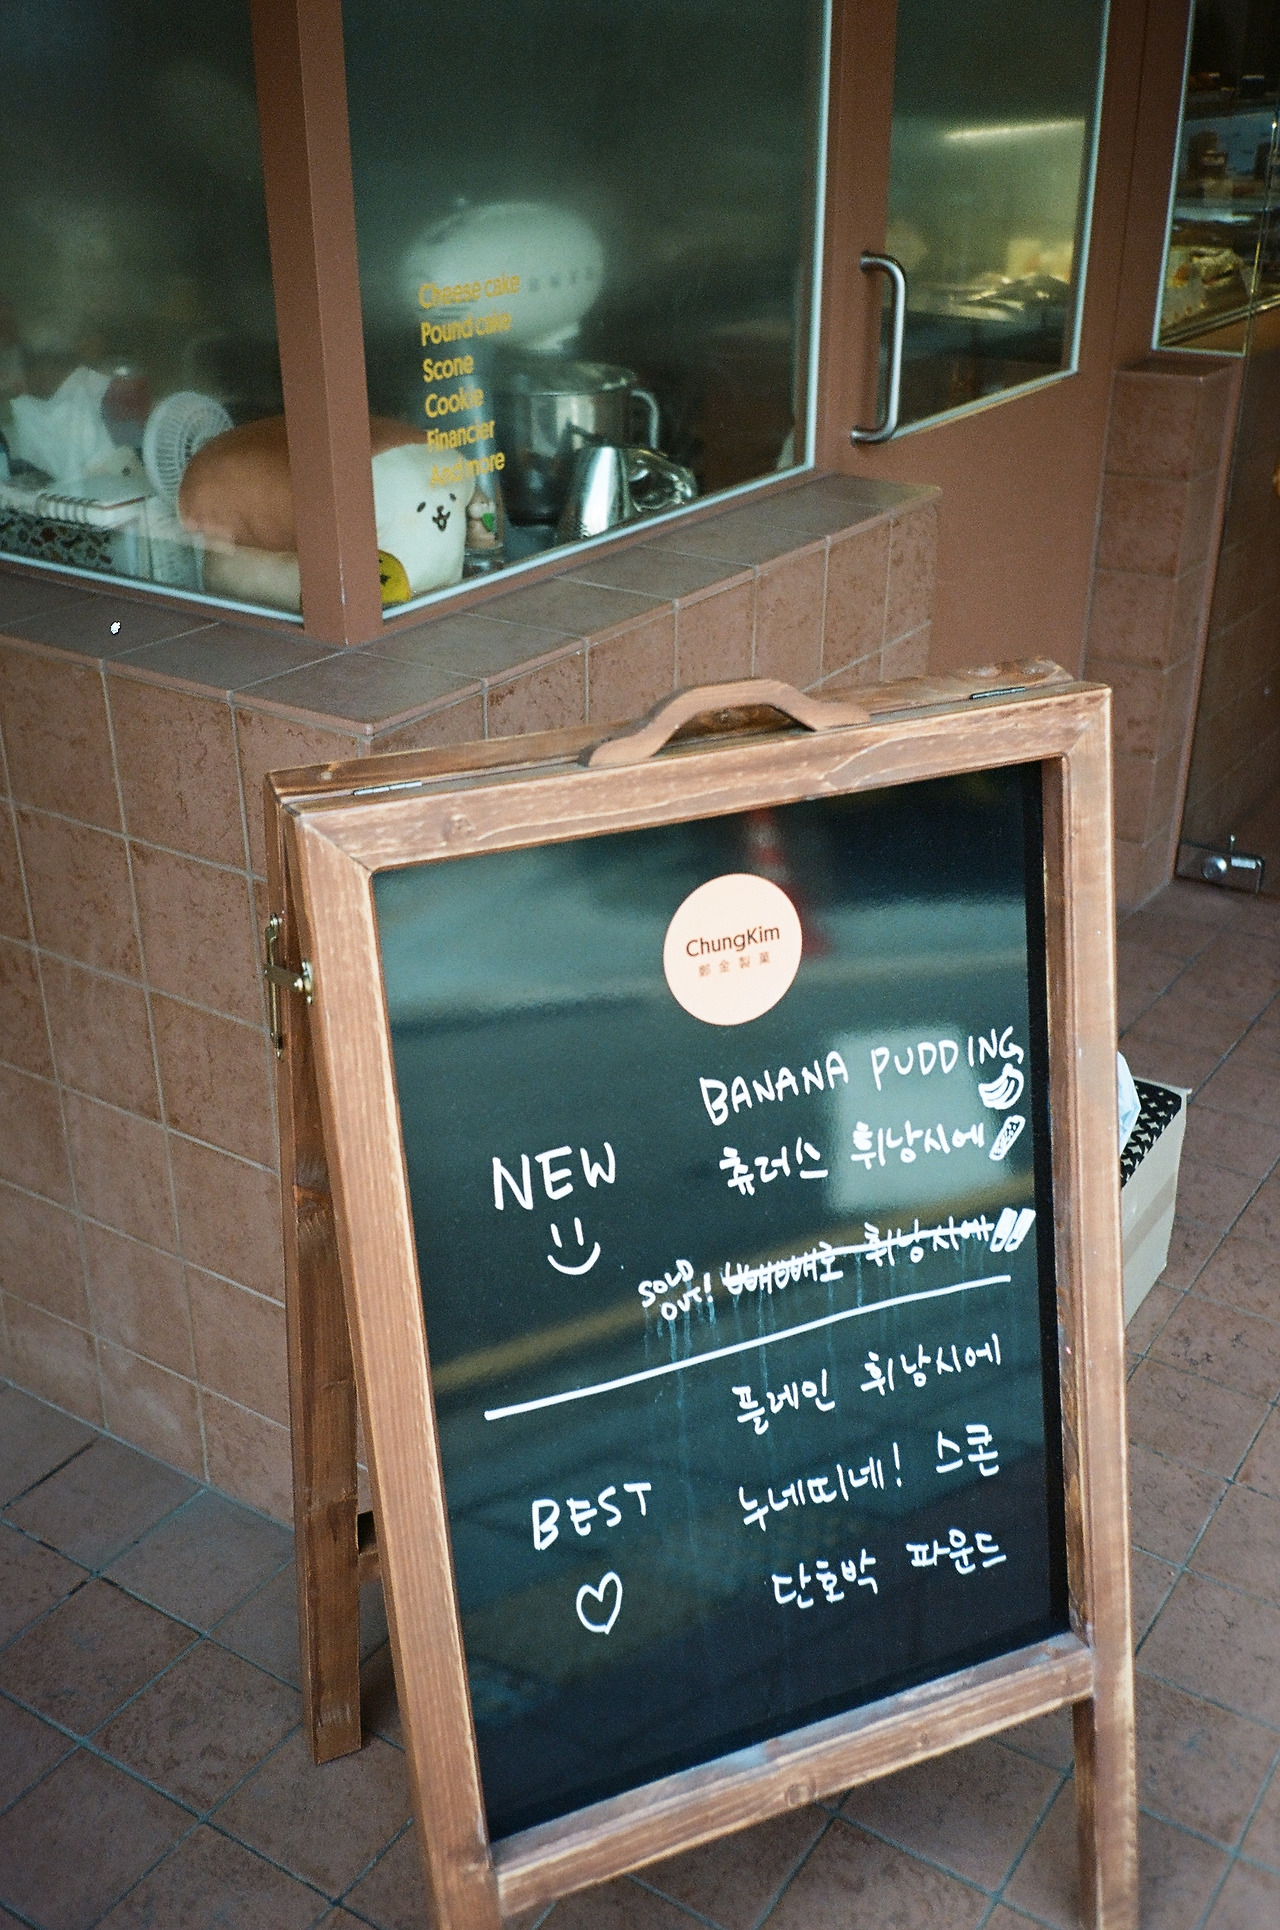 Cheese cake
Pound cake
Scone
Cookie
Financier
And more
ChungKim
鄭金製菓
NEW
BANANA PUDDING
츄러스 휘낭시에
SOLD OUT! 빼빼로 휘낭시에
BEST
플레인 휘낭시에
누네띠네! 스콘
단호박 파운드